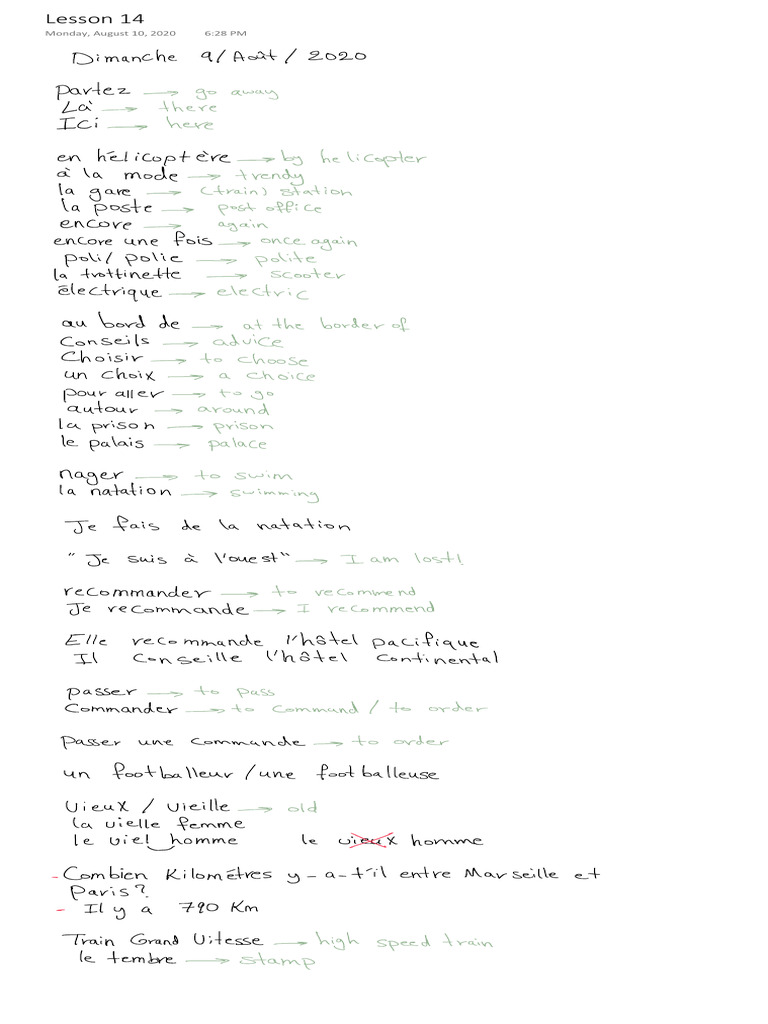 Lesson 14
Monday, August 10, 2020 6:28 PM
Dimanche 9/Août/2020
Partez → go away
Là → there
Ici → here
en hélicoptère → by helicopter
à la mode → trendy
la gare → (train) station
la poste → post office
encore → again
encore une fois → once again
poli/ polie → polite
la trottinette → scooter
électrique → electric
au bord de → at the border of
Conseils → advice
Choisir → to choose
un choix → a choice
pour aller → to go
autour → around
la prison → prison
le palais → palace
nager → to swim
la natation → swimming
Je fais de la natation
" Je suis à l'ouest" → I am lost!
recommander → to recommend
Je recommande → I recommend
Elle recommande l'hôtel pacifique
Il Conseille l'hôtel Continental
passer → to pass
Commander → to command / to order
Passer une commande → to order
un footballeur /une footballeuse
Vieux / Vieille → old
la vielle femme
le viel homme le vieux homme
- Combien Kilométres y-a-t'il entre Marseille et
Paris?
- Il y a 790 Km
Train Grand Vitesse → high speed train
le tembre → stamp